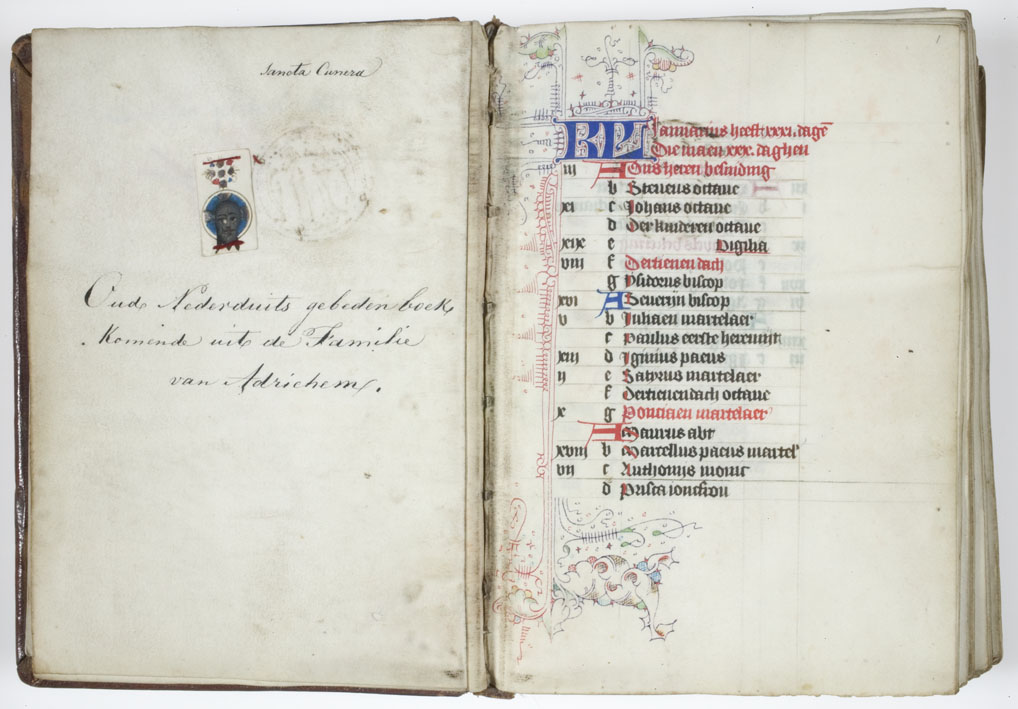 Sancta Cunera
Oud Nederduits gebeden boek,
Komende uit de Familie
van Adrichem.
1
KL Januarius heeft xxxi. dagē
Die maen xxx. daghen
iii A Ons heren besniding
b Steuens octaue
xi c Johans octaue
d Der kinderen octaue
xix e Vigilia
viii f Dertienen dach
g Ysidorus biscop
xvi A Seuerijn biscop
v b Juliaen martelaer
c Paulus eerste heremijt
xiii d Iginius paeus
ij e Satyrus martelaer
f Dertienendach octaue
x g Ponciaen martelaer
A Maurus abt
xviii b Marcellus paeus martel'
vii c Anthonijs monic
d Prisca ioncfrou